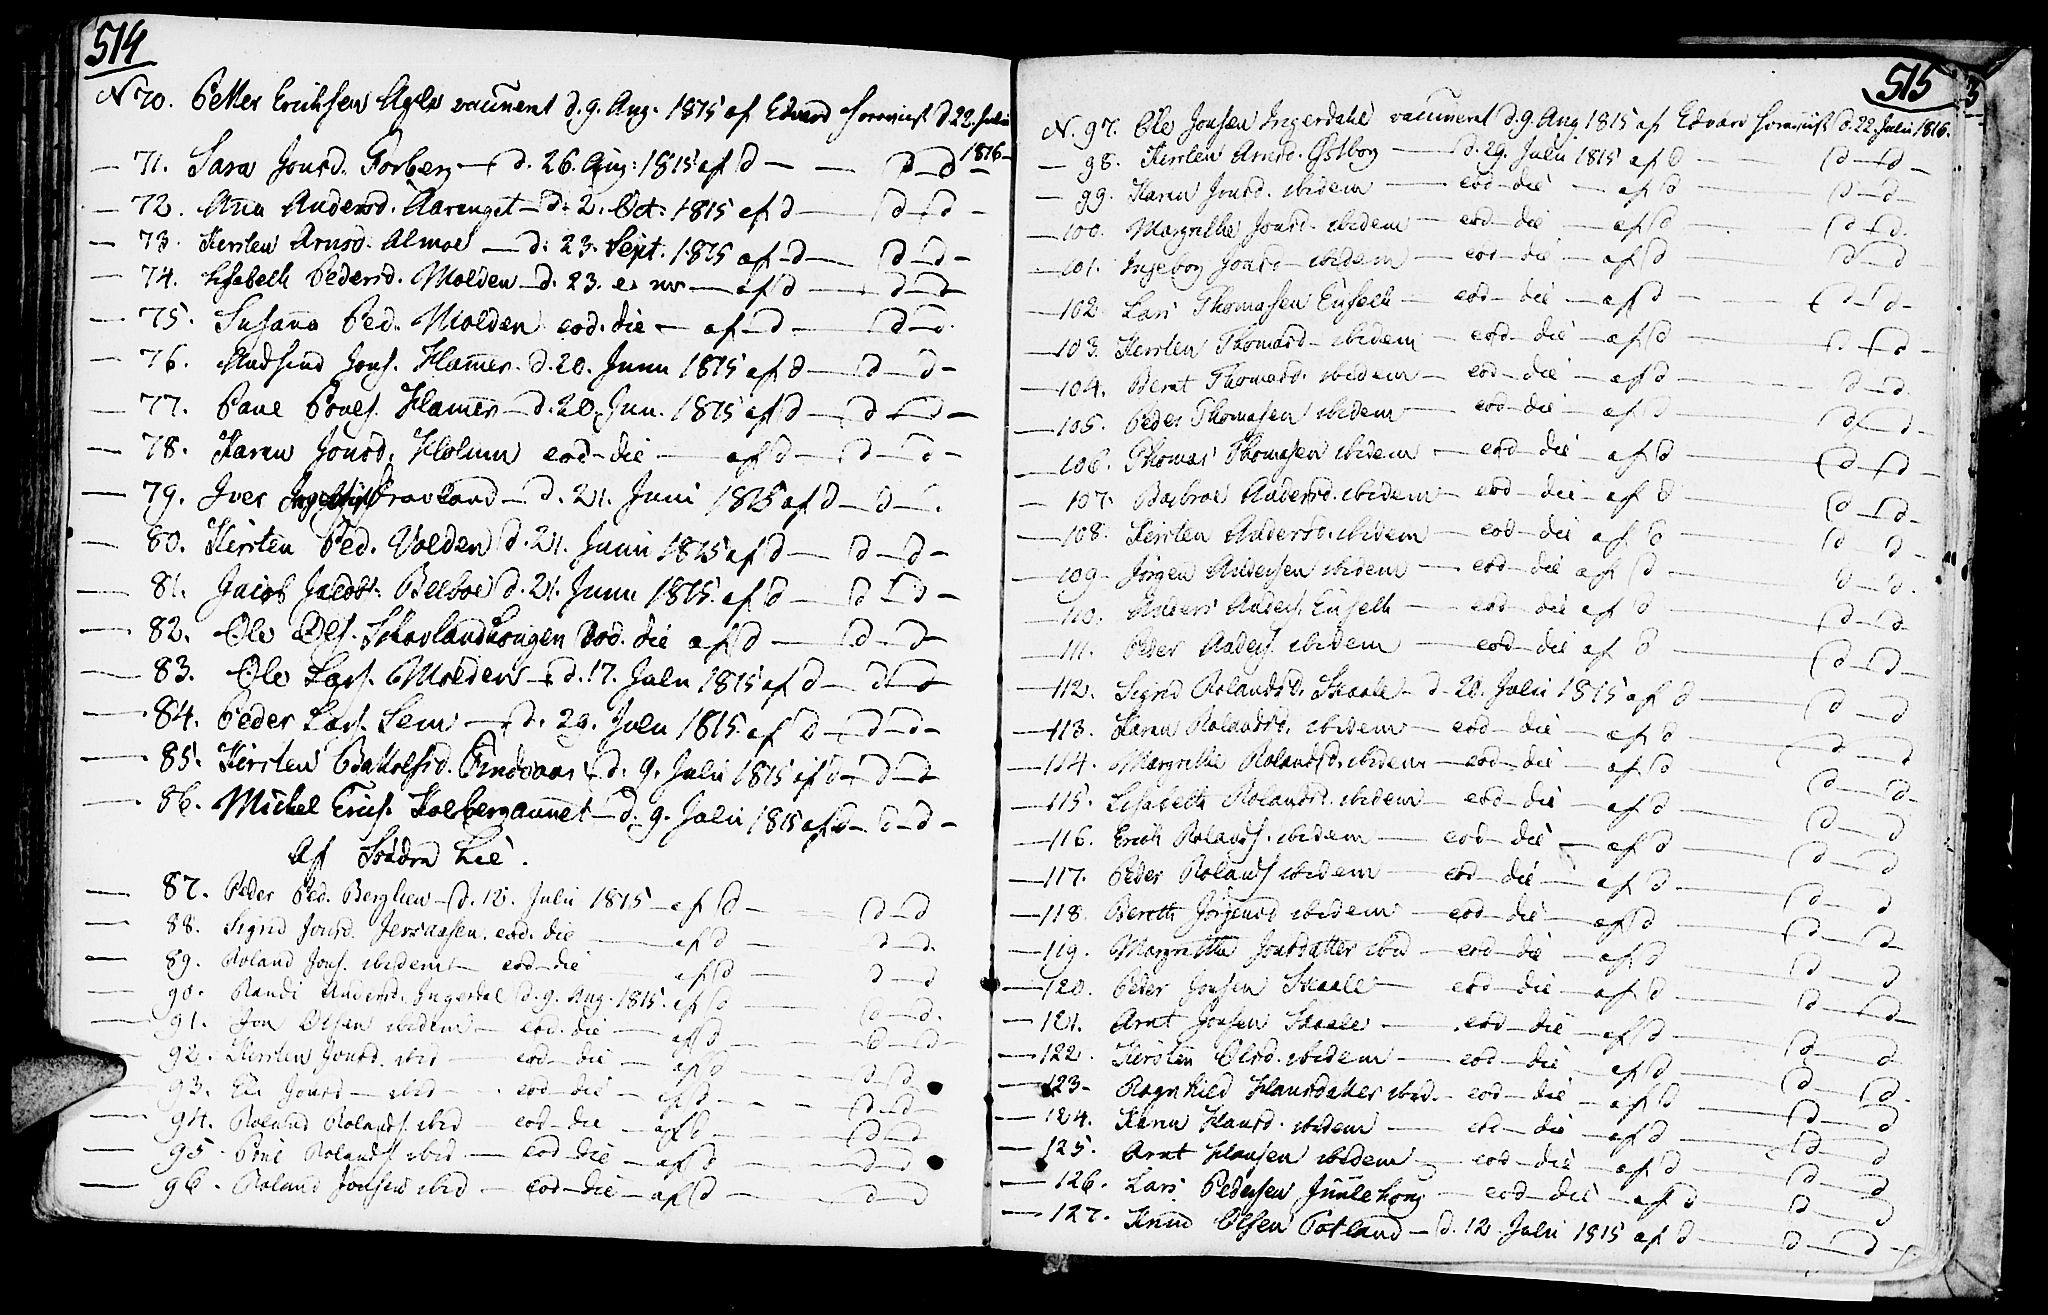 514
N 70. Petter Erichsen Agle vaccineret d. 9. Aug. 1815 af Edvard d 22. Julii 1816
71. Sara Jonsd. Forberg d. 26. Aug: 1815 af d d d
72. Ana Andersd. Aarenget d. 2. Oct: 1815 af d d d
73. Kersten Arnsd. Almoe d. 23. Sept. 1815 af d d d
74. Lisabeth Pedersd. Molden d. 23. af d d d
75. Susana Ped. Molden eod. die af d d d
76. Jons. Hamer d. 20. Junii 1815 af d d d
77. Paul Pouls. Hamer d. 20. Jun. 1815 af d d d
78. Karen Jonsd. Holum eod die af d d d
79. Iver d. 21. Juni 1815 af d d
80. Kirsten Ped. Volden d. 21. Junii 1815 af d d d
81. Jacob Jacobs. Belboe d. 21. Junii 1815 af d d d
82. Ole Ols. eod. die af d d d
83. Ole Lars. Molden d. 17. Julii 1815 af d d d
84. Peder Lars. Sem d. 29. Julii 1815 af d d d
85. Kirsten d. 9. Julii 1815 af d d d
86. Michel Erics. Kolbergaunet d. 9. Julii 1815 af d d d
Af Snåden Lie.
87. Peder Ped. Berglien d. 12. Julii 1815 af d d d
88. Sigrid Jonsd. eod. die af d d d
89. Roland Jons. ibidem eod die af d d d
90. Randi Andersd. Ingerdal d. 9. Aug. 1815 af d d d
91. Jon Olsen ibidem eod. die af d d d
92. Kersten Jonsd. ibid eod die af d d d
93. Jonsd ibid eod die af d d d
94. Roland Rolands. ibid eod die af d d d
95. Poul Rolands ibid eod die af d d d
96. Roland Jonsen ibid eod die af d d d
515
N. 97. Ole Jonsen Ingerdahl vaccineret d. 9 Aug 1815 af Edvard d. 22 Julii 1816.
98. Kersten Arnsd. Østborg d. 29. Julii 1815 af d d d
99. Karen Jonsd. ibidem eod die af d d d
100. Margrethe Jonsd. ibidem eod die af d d d
101. Ingeborg Jonsd ibidem eod die af d d d
102. Lars Thomasen eod die af d d d
103. Kersten Thomasd ibidem eod die af d d d
104. Berat Thomasd. ibidem eod die af d d d
105. Peder Thomasen ibidem eod die af d d d
106. Thomas Thomasen ibidem eod die af d d d
107. Barbroe Andersd. ibidem eod die af d d d
108. Kersten Andersd. ibidem eod die af d d d
109. Jörgen Andersen ibidem eod die af d d d
110. Anders Anders. eod die af d d d
111. Peder Anders. ibidem eod die af d d d
112. Sigrid Rolandsd. Skaale d 20. Julii 1815 af d d d
113. Karen Rolandsd. ibidem eod die af d d d
114. Margrethe Rolandsd. ibidem eod die af d d d
115. Lisabeth Rolandsd. ibidem eod die af d d d
116. Erich Rolands. ibidem eod die af d d d
117. Peder Rolands ibidem eod die af d d d
118. Bereth Jörgensd ibidem eod die af d d d
119. Margrethe Jonsdatter ibid eod die af d d d
120. Peder Jonsen Skaale eod die af d d d
121. Arnt Jonsen Skaale eod die af d d d
122. Kirsten Olsd. ibidem eod die af d d d
123. Ragnhild Hansdatter ibid. eod die af d d d
124. Karen Hansd. ibidem eod die af d d d
125. Arnt Hansen ibidem eod die af d d d
126. Lars Pedersen eod die af d d d
127. Knud Olsen d. 12 Julii 1815 af d d d